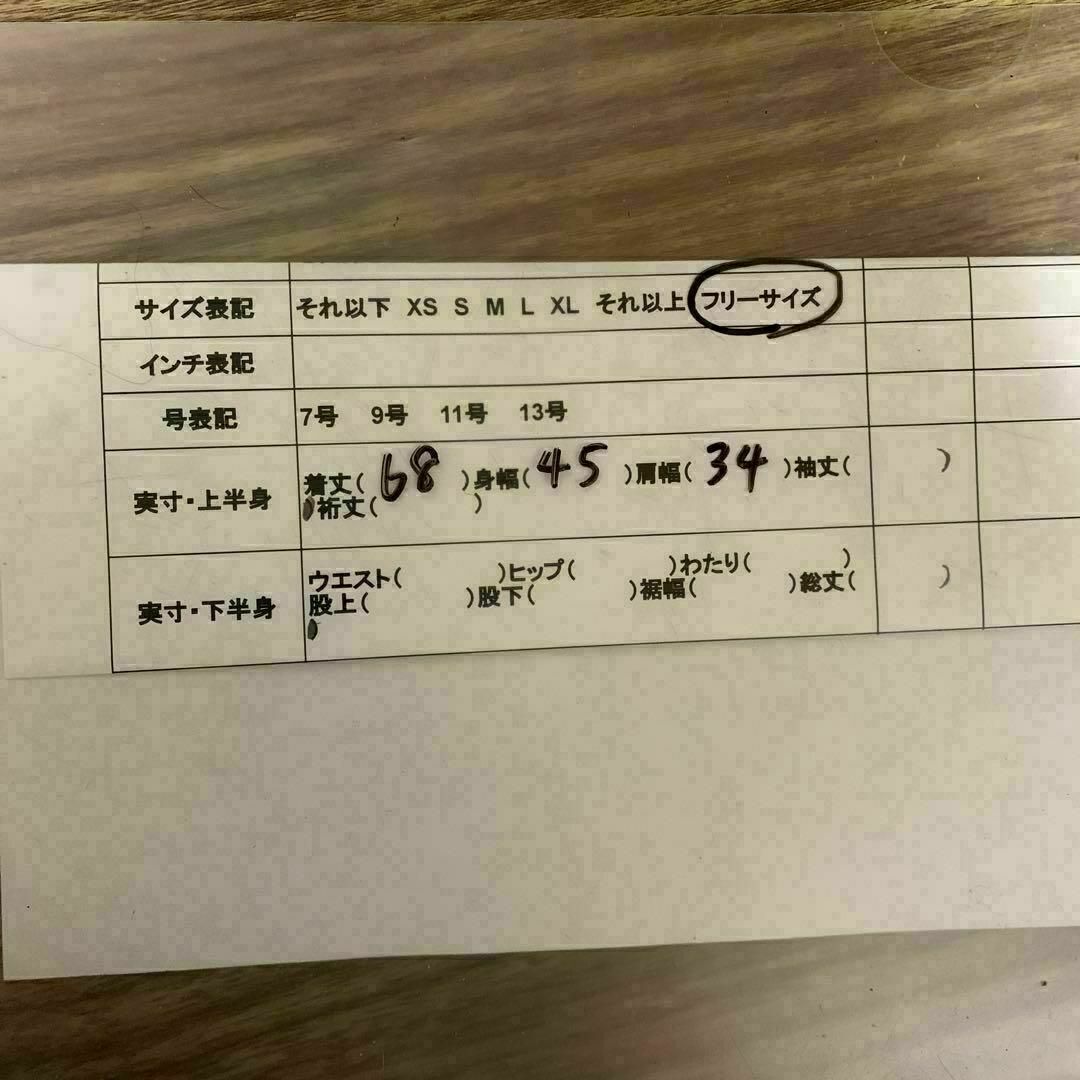 サイズ表記 それ以下 XS S M L XL それ以上 フリーサイズ
インチ表記
号表記 7号 9号 11号 13号
実寸・上半身 着丈( 68 )身幅( 45 )肩幅( 34 )袖丈( )
裄丈( )
実寸・下半身 ウエスト( )ヒップ( )わたり( )
股上( )股下( )裾幅( )総丈( )